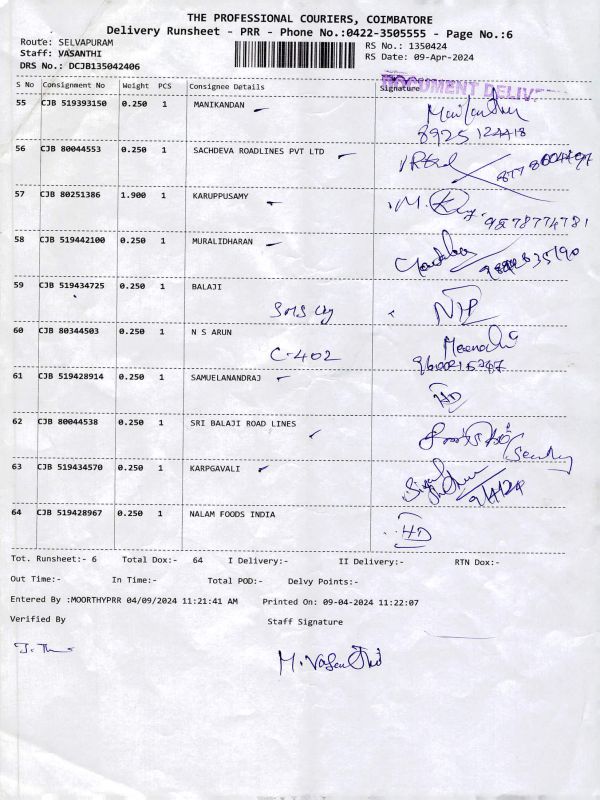 THE PROFESSIONAL COURIERS, COIMBATORE
Delivery Runsheet - PRR - Phone No.:0422-3505555 - Page No.:6
Route: SELVAPURAM
Staff: VASANTHI
DRS No.: DCJB135042406
RS No.: 1350424
RS Date: 09-Apr-2024
S No Consignment No Weight PCS Consignee Details Signature
DOCUMENT DELIV
55 CJB 519393150 0.250 1 MANIKANDAN
8925 124418
56 CJB 80044553 0.250 1 SACHDEVA ROADLINES PVT LTD
57 CJB 80251386 1.900 1 KARUPPUSAMY
9878774781
58 CJB 519442100 0.250 1 MURALIDHARAN
59 CJB 519434725 0.250 1 BALAJI
60 CJB 80344503 0.250 1 N S ARUN
C-402
61 CJB 519428914 0.250 1 SAMUELANANDRAJ
HD
62 CJB 80044538 0.250 1 SRI BALAJI ROAD LINES
63 CJB 519434570 0.250 1 KARPGAVALI
9/4/24
64 CJB 519428967 0.250 1 NALAM FOODS INDIA
HD
Tot. Runsheet:- 6 Total Dox:- 64 I Delivery:- II Delivery:- RTN Dox:-
Out Time:- In Time:- Total POD:- Delvy Points:-
Entered By :MOORTHYPRR 04/09/2024 11:21:41 AM Printed On: 09-04-2024 11:22:07
Verified By Staff Signature
M. Vasanthi